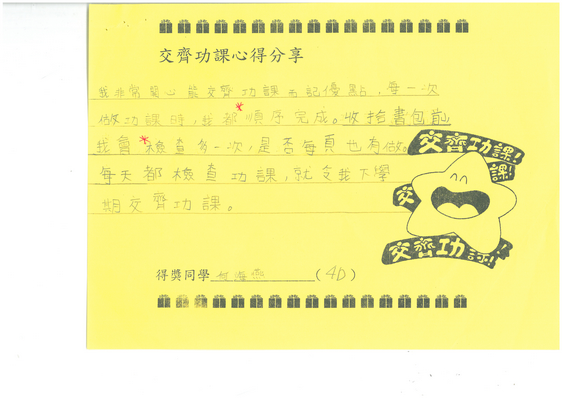 交齊功課心得分享
我非常開心能交齊功課而記優點，每一次
做功課時，我都順序完成。收拾書包前，
我會檢查多一次，是否每頁也有做。
每天都檢查功課，就交我下學
期交齊功課。
交齊功課!
課!
交
交齊功課!
得獎同學 海 (4D)